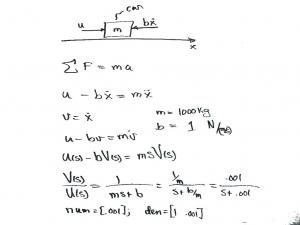 car
u m bẋ
x
∑ F = ma
u - bẋ = mẍ
v = ẋ m = 1000 kg
b = 1 N/(m/s)
u - bv = mv̇
U(s) - bV(s) = msV(s)
V(s)/U(s) = 1/(ms+b) = (1/m)/(s+b/m) = .001/(s+.001)
num=[.001]; den=[1 .001]